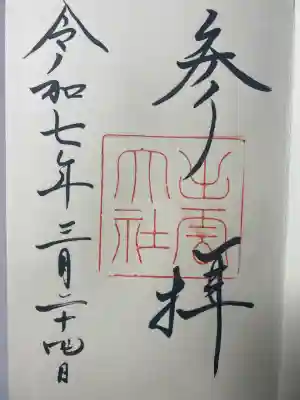 参拝
出雲大社
令和七年三月二十四日